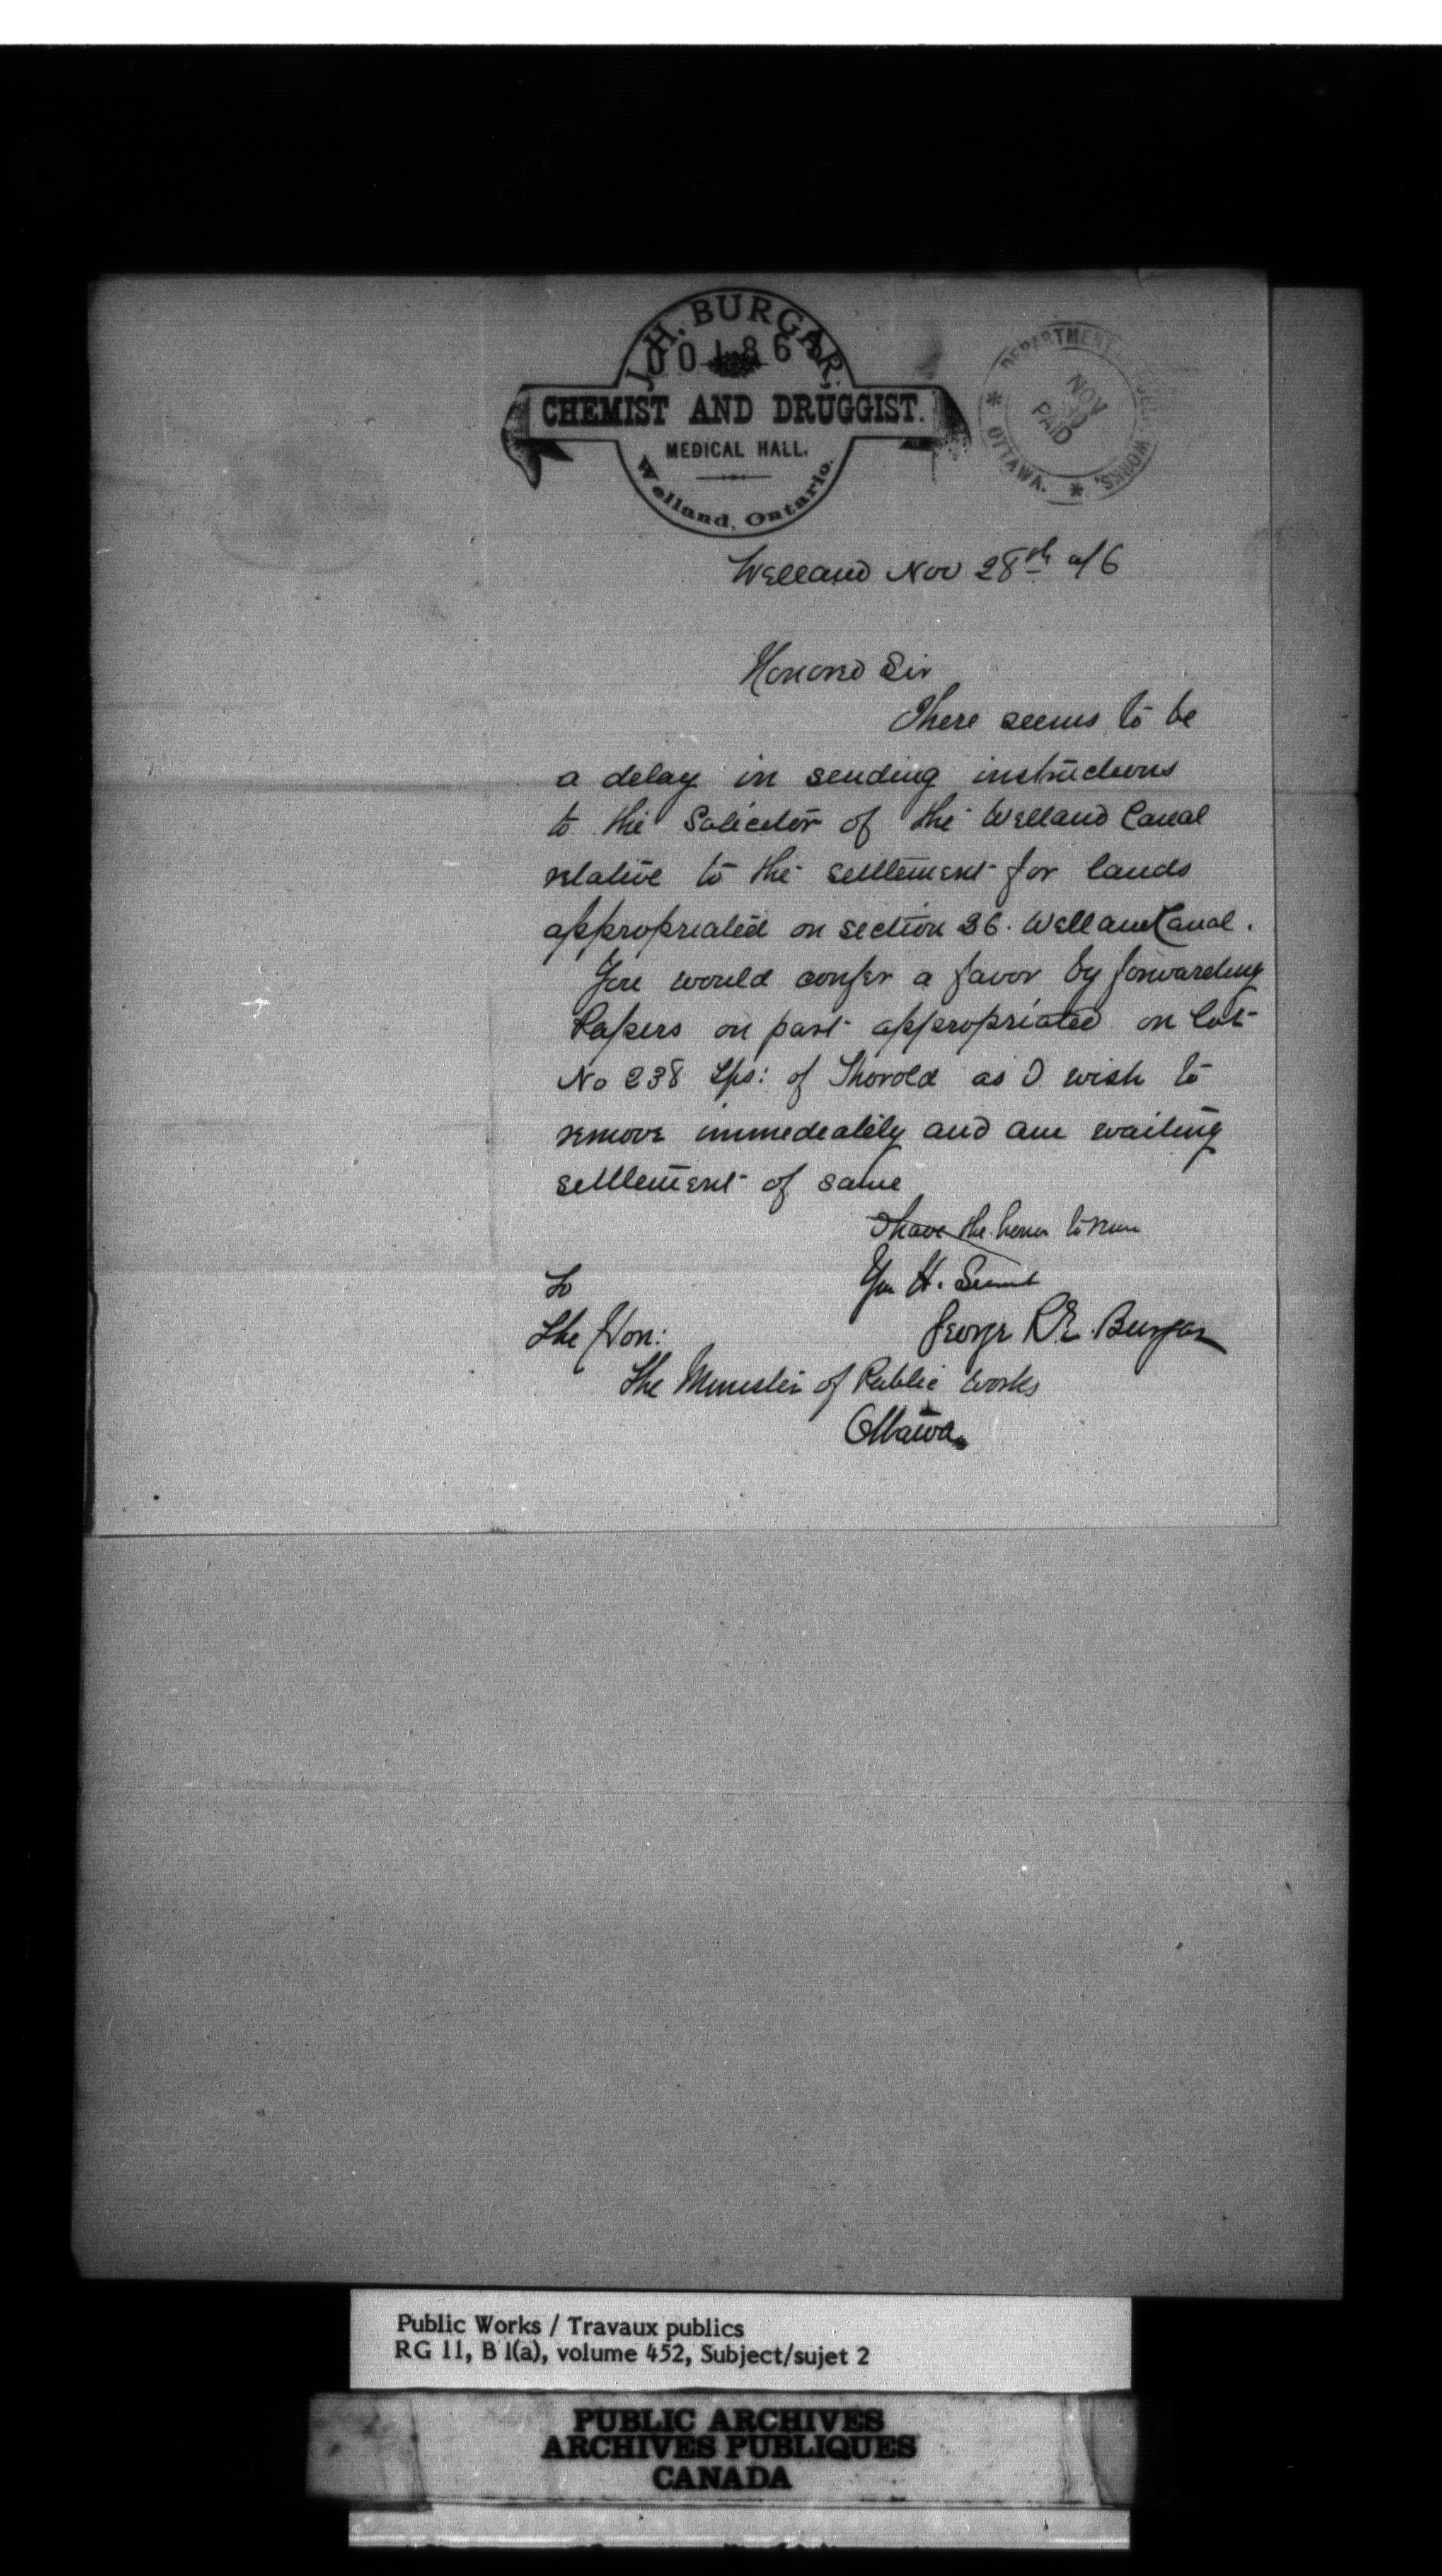 J.H. BURGAR.
CHEMIST AND DRUGGIST.
MEDICAL HALL.
Welland, Ontario.
DEPARTMENT PUBLIC WORKS,
OTTAWA.
NOV
30
PAID
Welland Nov 28th /76
Honored Sir
There seems to be
a delay in sending instructions
to the Solicitor of the Welland Canal
relative to the settlement for lands
appropriated on section 26. Welland Canal.
You would confer a favor by forwarding
Papers on part appropriated on lot
No 238 Tps: of Thorold as I wish to
remove immediately and am waiting
settlement of same
I have the honor to
To
The Hon:
Your H. Servant
George R.E. Burgar
The Minister of Public Works
Ottawa
Public Works / Travaux publics
RG 11, B 1(a), volume 452, Subject/sujet 2
PUBLIC ARCHIVES
ARCHIVES PUBLIQUES
CANADA